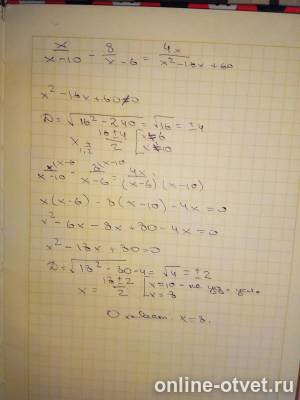 x/(x-10) - 8/(x-6) = 4x/(x²-16x+60)
x²-16x+60≠0
D=√(16²-240)=√16=±4
x₁,₂ (16±4)/2 [x≠6 x≠10
x^(x-6)/(x-10) - 8^(x-10)/(x-6) = 4x/((x-6)(x-10))
x(x-6)-8(x-10)-4x=0
x²-6x-8x+80-4x=0
x²-18x+80=0
D=√(18²-80·4=√4=±2
x=(18±2)/2 [x=10 - не удз. усл. x=8
Ответ: x=8.
online-otvet.ru